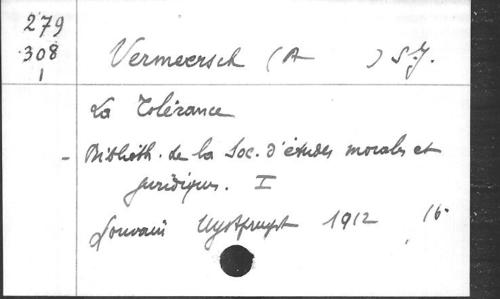 279
308
1
Vermeersch (A ) S.J.
La Tolérance
- Biblioth. de la Soc. d'études morales et
juridiques. I
Louvain Uystpruyst 1912 16-